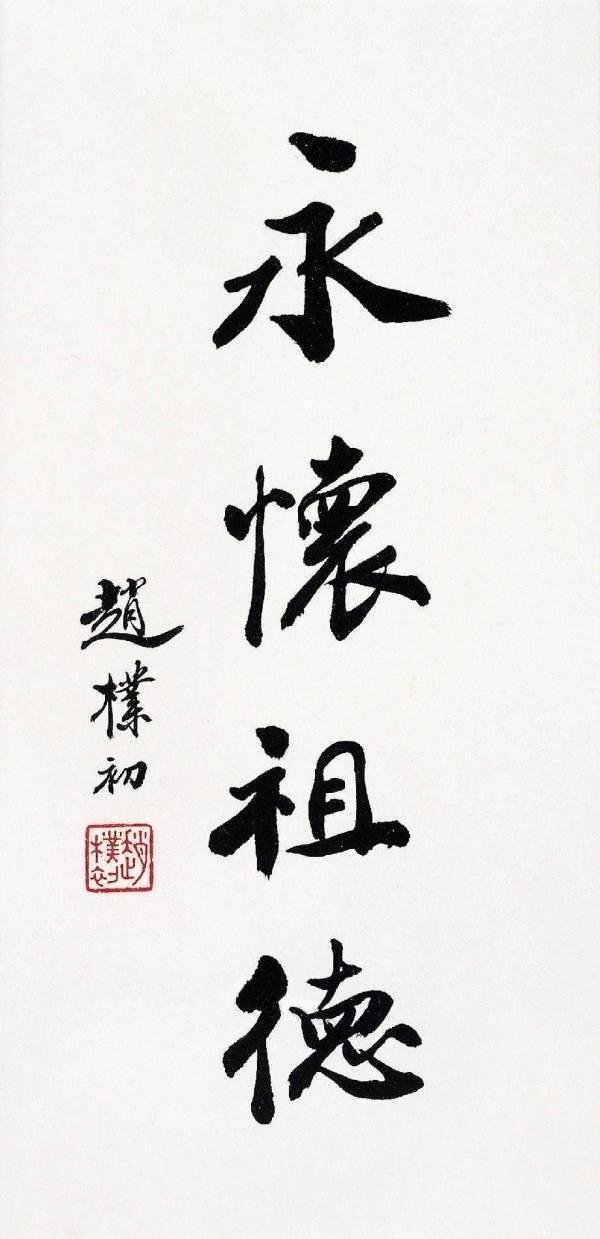 永懷祖德
趙樸初
趙樸初